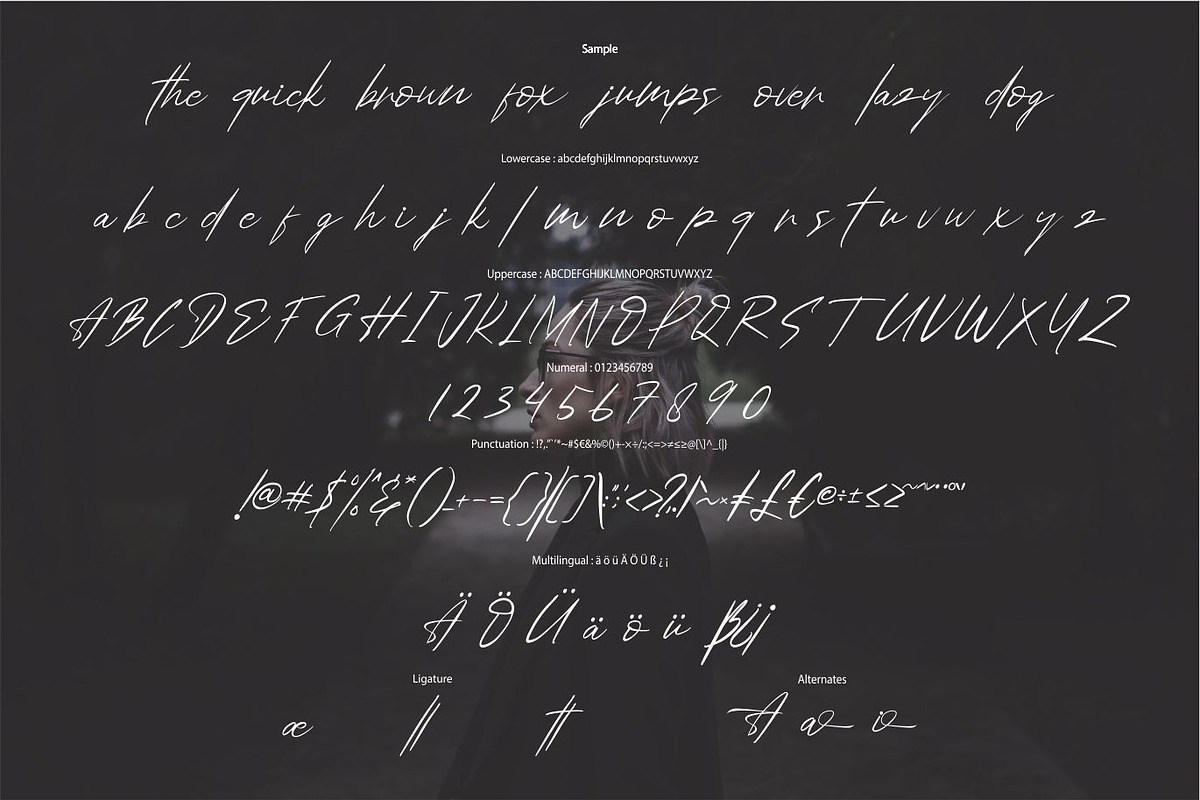 Sample
the quick brown fox jumps over lazy dog
Lowercase : abcdefghijklmnopqrstuvwxyz
a b c d e f g h i j k l m n o p q r s t u v w x y z
Uppercase : ABCDEFGHIJKLMNOPQRSTUVWXYZ
A B C D E F G H I J K L M N O P Q R S T U V W X Y Z
Numeral : 0123456789
1 2 3 4 5 6 7 8 9 0
Punctuation : !?,."˜'*~#$€&%©()+-×÷/:;<=>≠≤≥@[\]^_{|}
!@#$%^&*()_+-={}|[]\:;"'<>?,./`~×
Multilingual : ä ö ü Ä Ö Ü ß ¿ ¡
Ä Ö Ü ä ö ü ß ¿ ¡
Ligature Alternates
æ ll tt A a i